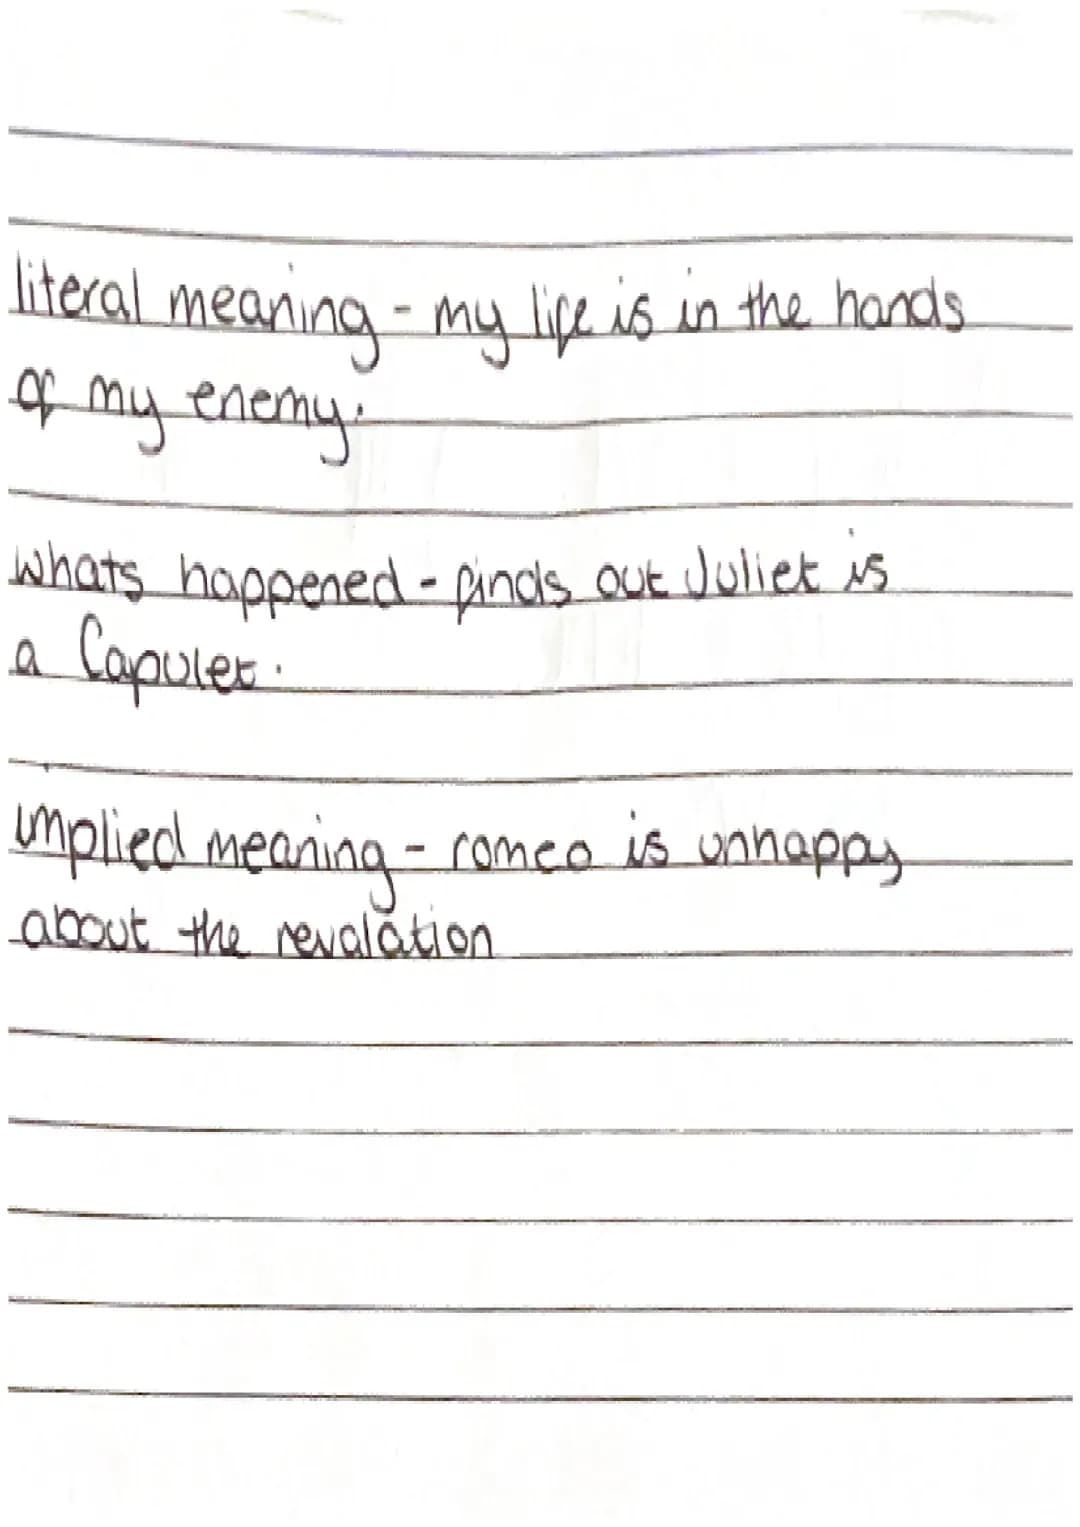 literal meaning - my life is in the hands
of my enemy.
whats happened - finds out Juliet is
a Capulet.
implied meaning - romeo is unhappy
about the revalation